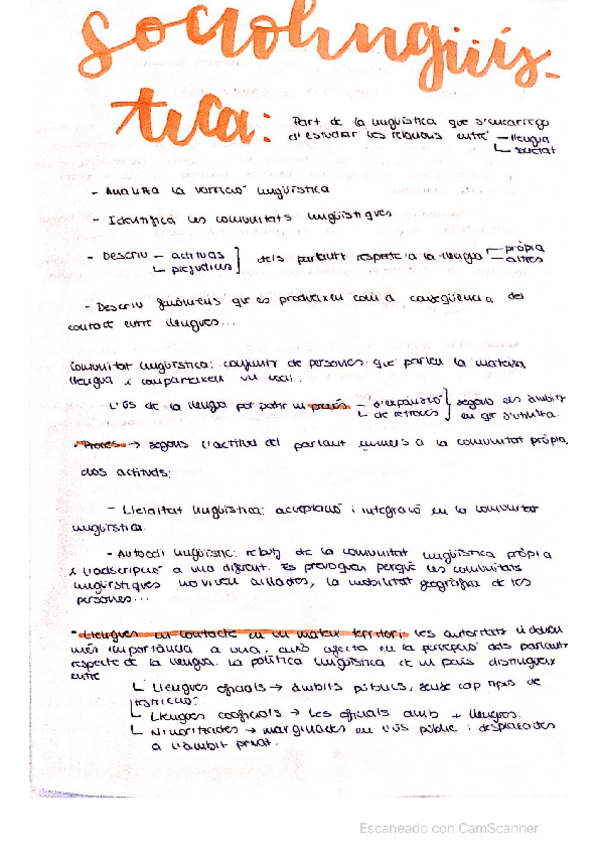 Sociolingüís-
tica: Part de la lingüística que s'encarrega
d'estudiar les relacions entre — llengua
societat
- Analitza la variació lingüística
- Identifica les comunitats lingüístiques
- Descriu — actituds
prejudicis
dels parlants respecte a la llengua — pròpia
— altres
- Descriu fenòmens que es produeixen com a conseqüència del
contacte entre llengues...
Comunitat lingüística: conjunt de persones que parlen la mateixa
llengua i comparteixen un codi.
L'ús de la llengua pot patir un procés — d'expansió
— de retrocés
segons els àmbits
en què s'utilitza.
· Procés → segons l'actitud del parlant envers a la comunitat pròpia,
dos actituds:
- Lleialtat lingüística: acceptació i integració en la comunitat
lingüística.
- Autoodi lingüístic: rebuig de la comunitat lingüística pròpia
i l'adscripció a una diferent. Es provoquen perquè les comunitats
lingüístiques no viuen aïllades, la mobilitat geogràfica de les
persones...
- Llengues en contacte en un mateix territori: les autoritats li donen
més importància a una, això afecta en la percepció dels parlants
respecte de la llengua. La política lingüística de un país distingueix
entre
Llengues oficials → àmbits públics, sense cap tipus de
restricció.
Llengues cooficials → les oficials amb + llengues.
Minoritzades → marginades en l'ús públic i desplaçades
a l'àmbit privat.
Escaneado con CamScanner